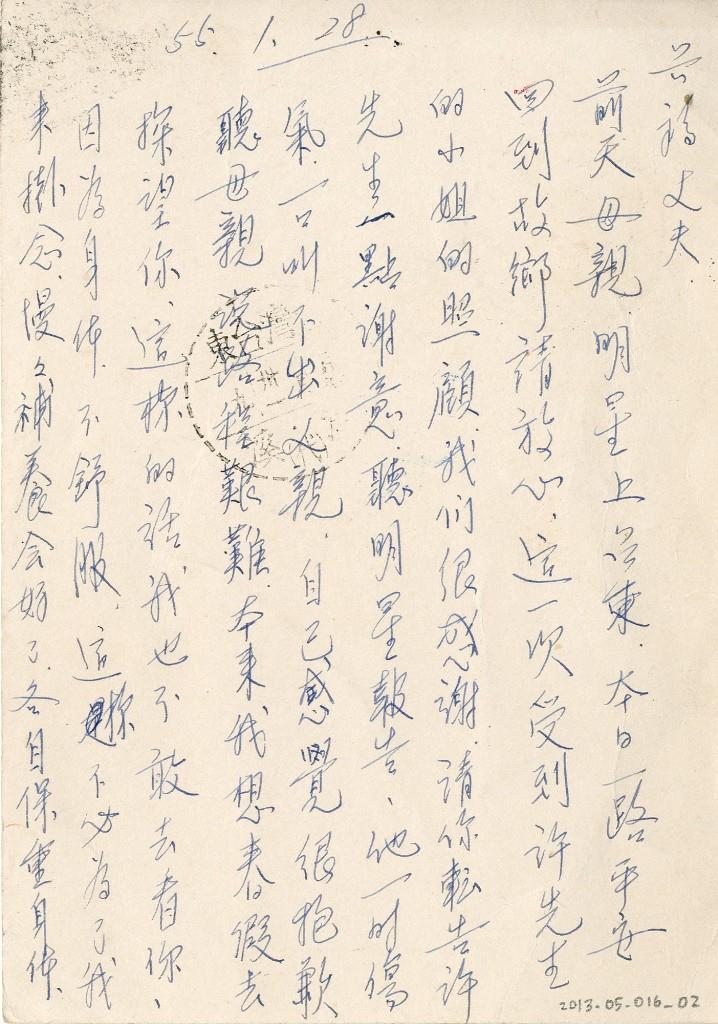 55. 1. 28.
丈夫
前天母親明星上台東.本日一路平安
回到故鄉請放心、這一次受到许先生
的小姐的照顧.我们很感謝.請你転告許
先生一點謝意.聽明星報告、他一时傷
氣.一口叫不出父親.自己感覺很抱歉
聽母親说路程艱難本来我想春假去
探望你、這様的话我也不敢去看你、
因為身体不舒服.這様不必為了我
来掛念.慢々補養会好了.各自保重身体.
2013-05-016_02